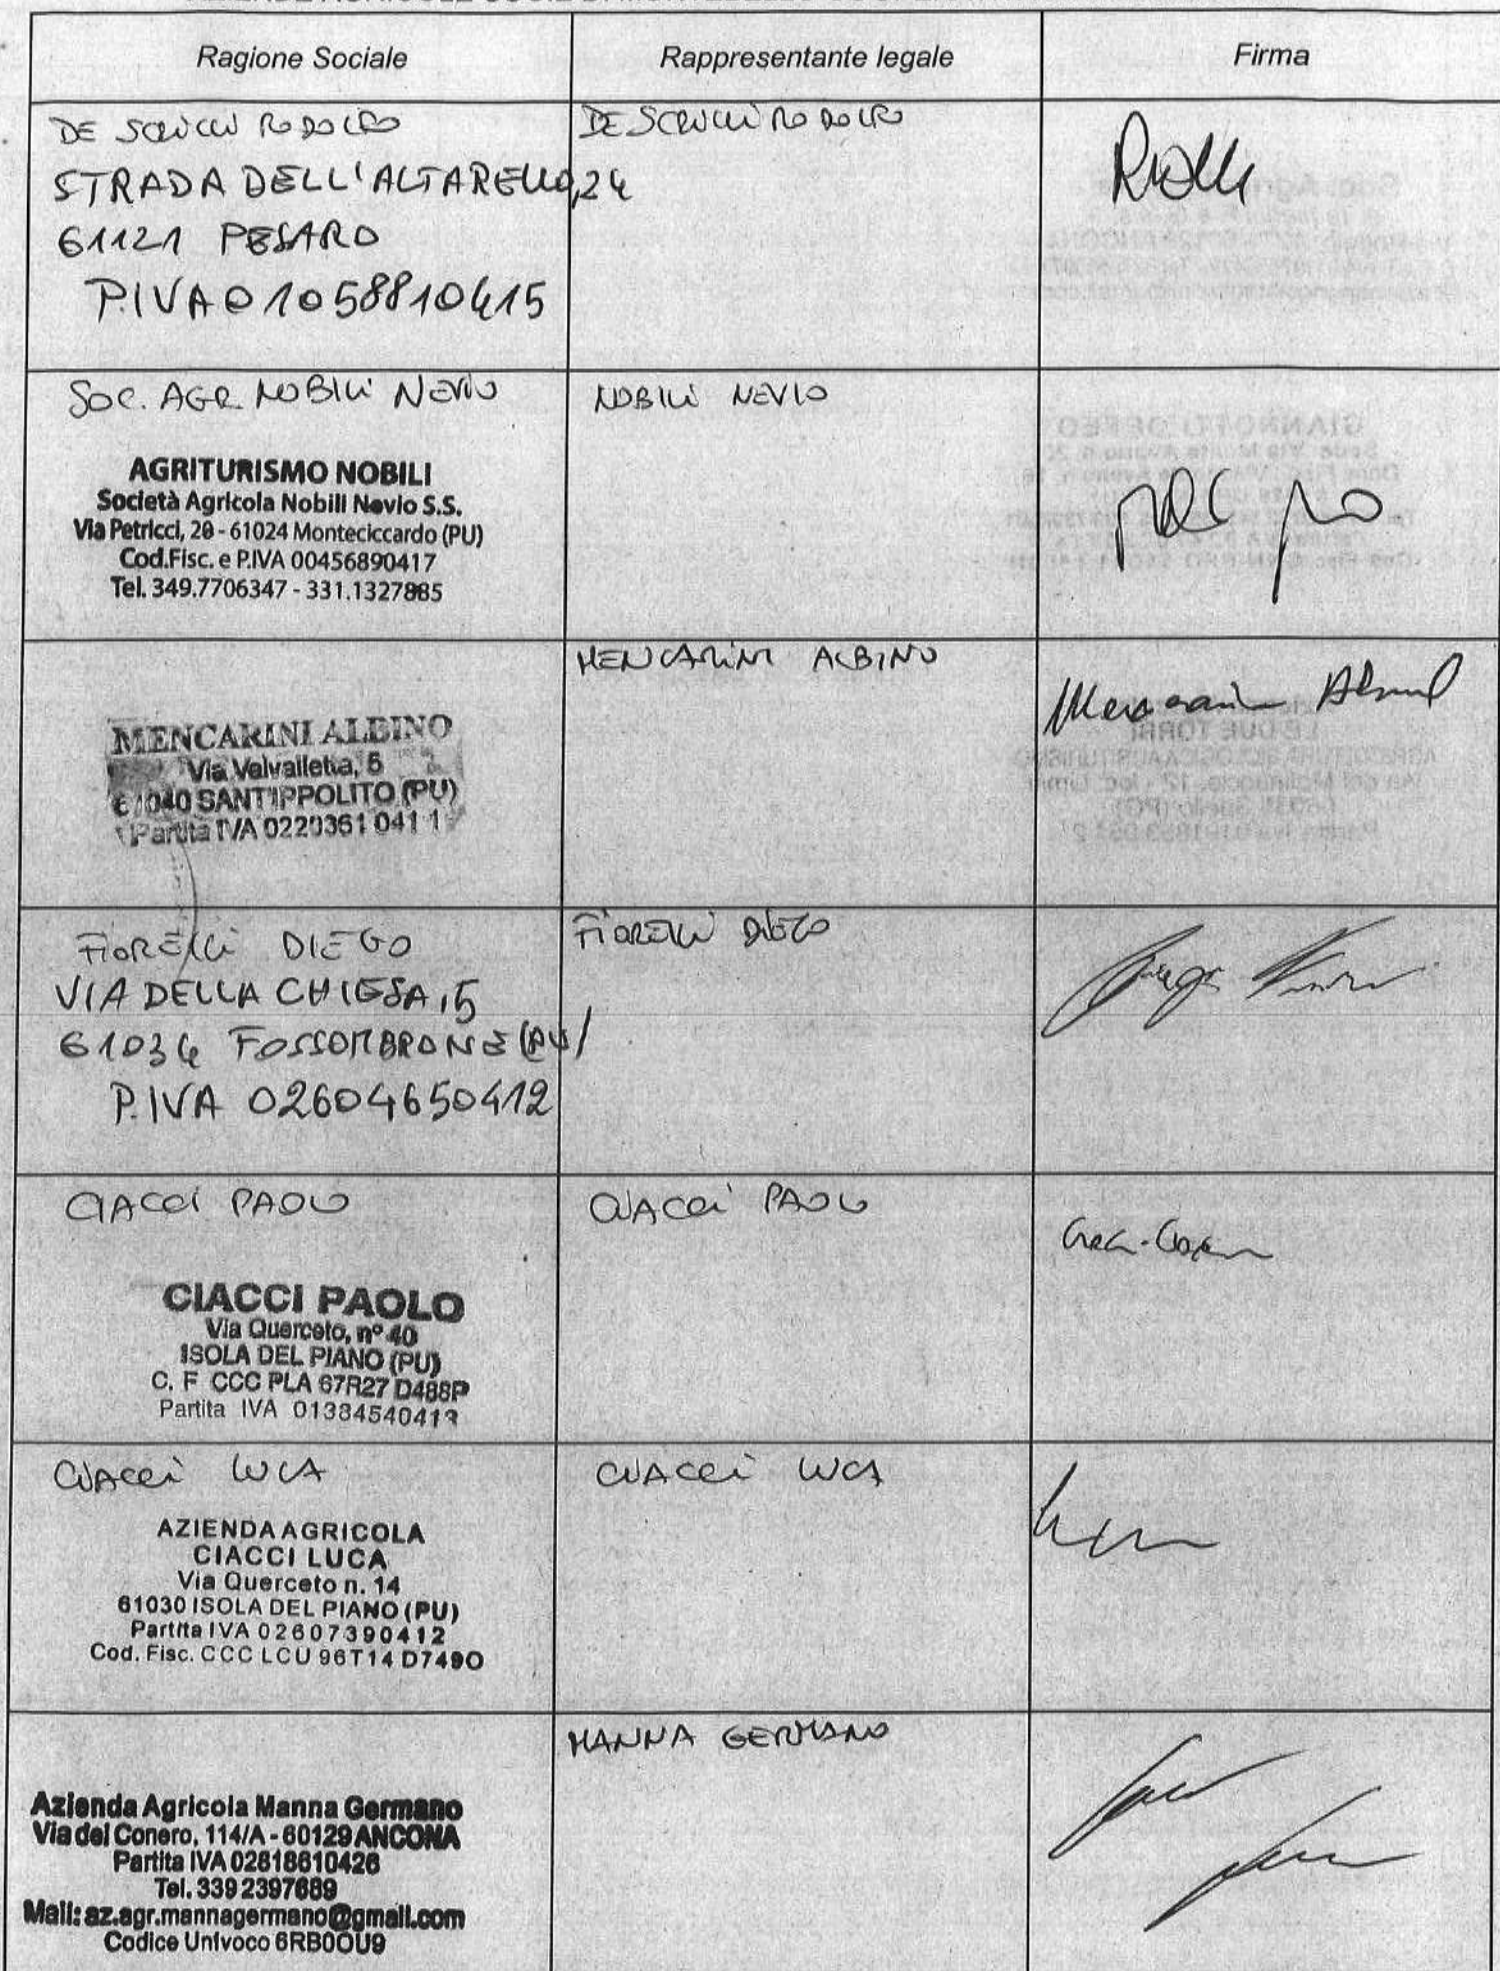 Ragione Sociale
Rappresentante legale
Firma
DE SCRILLI RODOLFO
DE SCRILLI RODOLFO
STRADA DELL'ALTARELLO, 24
61121 PESARO
P.IVA 01058810415
SOC. AGR. NOBILI NEVIO
NOBILI NEVIO
AGRITURISMO NOBILI
Società Agricola Nobili Nevio S.S.
Via Petricci, 28 - 61024 Monteciccardo (PU)
Cod.Fisc. e P.IVA 00456890417
Tel. 349.7706347 - 331.1327885
MENCARINI ALBINO
MENCARINI ALBINO
Via Valvalletta, 5
61040 SANT'IPPOLITO (PU)
Partita IVA 0220361 041 1
Mencarini
FIORELLI DIEGO
FIORELLI DIEGO
VIA DELLA CHIESA, 5
61034 FOSSOMBRONE (PU)
P.IVA 02604650412
CIACCI PAOLO
CIACCI PAOLO
CIACCI PAOLO
Via Querceto, nº 40
ISOLA DEL PIANO (PU)
C. F CCC PLA 67R27 D488P
Partita IVA 0138454041
CIACCI LUCA
CIACCI LUCA
AZIENDA AGRICOLA
CIACCI LUCA
Via Querceto n. 14
61030 ISOLA DEL PIANO (PU)
Partita IVA 02607390412
Cod. Fisc. CCC LCU 96T14 D749O
MANNA GERMANO
Azienda Agricola Manna Germano
Via del Conero, 114/A - 60129 ANCONA
Partita IVA 02818610426
Tel. 339 2397689
Mail: az.agr.mannagermano@gmail.com
Codice Univoco 6RB0OU9